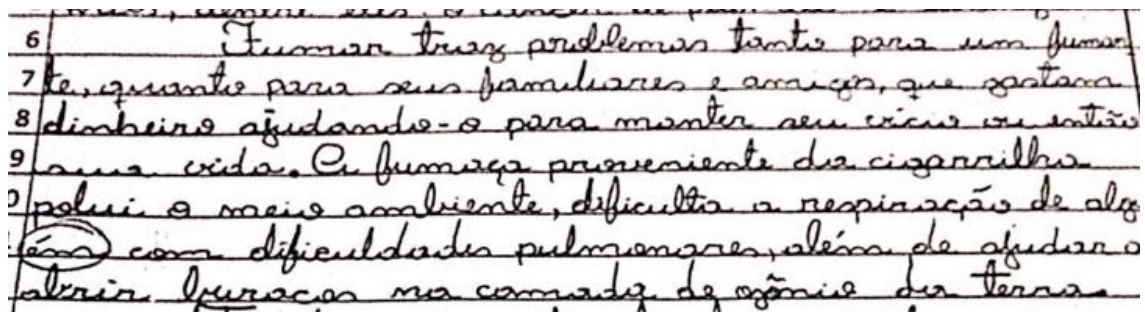 6 Fumar traz problemas tanto para um fuman
7 te, quanto para seus familiares e amigos, que gastam
8 dinheiro ajudando-o para manter seu vício ou então
9 sua vida. A fumaça proveniente da cigarrilha
polui o meio ambiente, dificulta a respiração de algu
ém com dificuldades pulmonares, além de ajudar a
abrir buracos na camada de ozônio da terra.